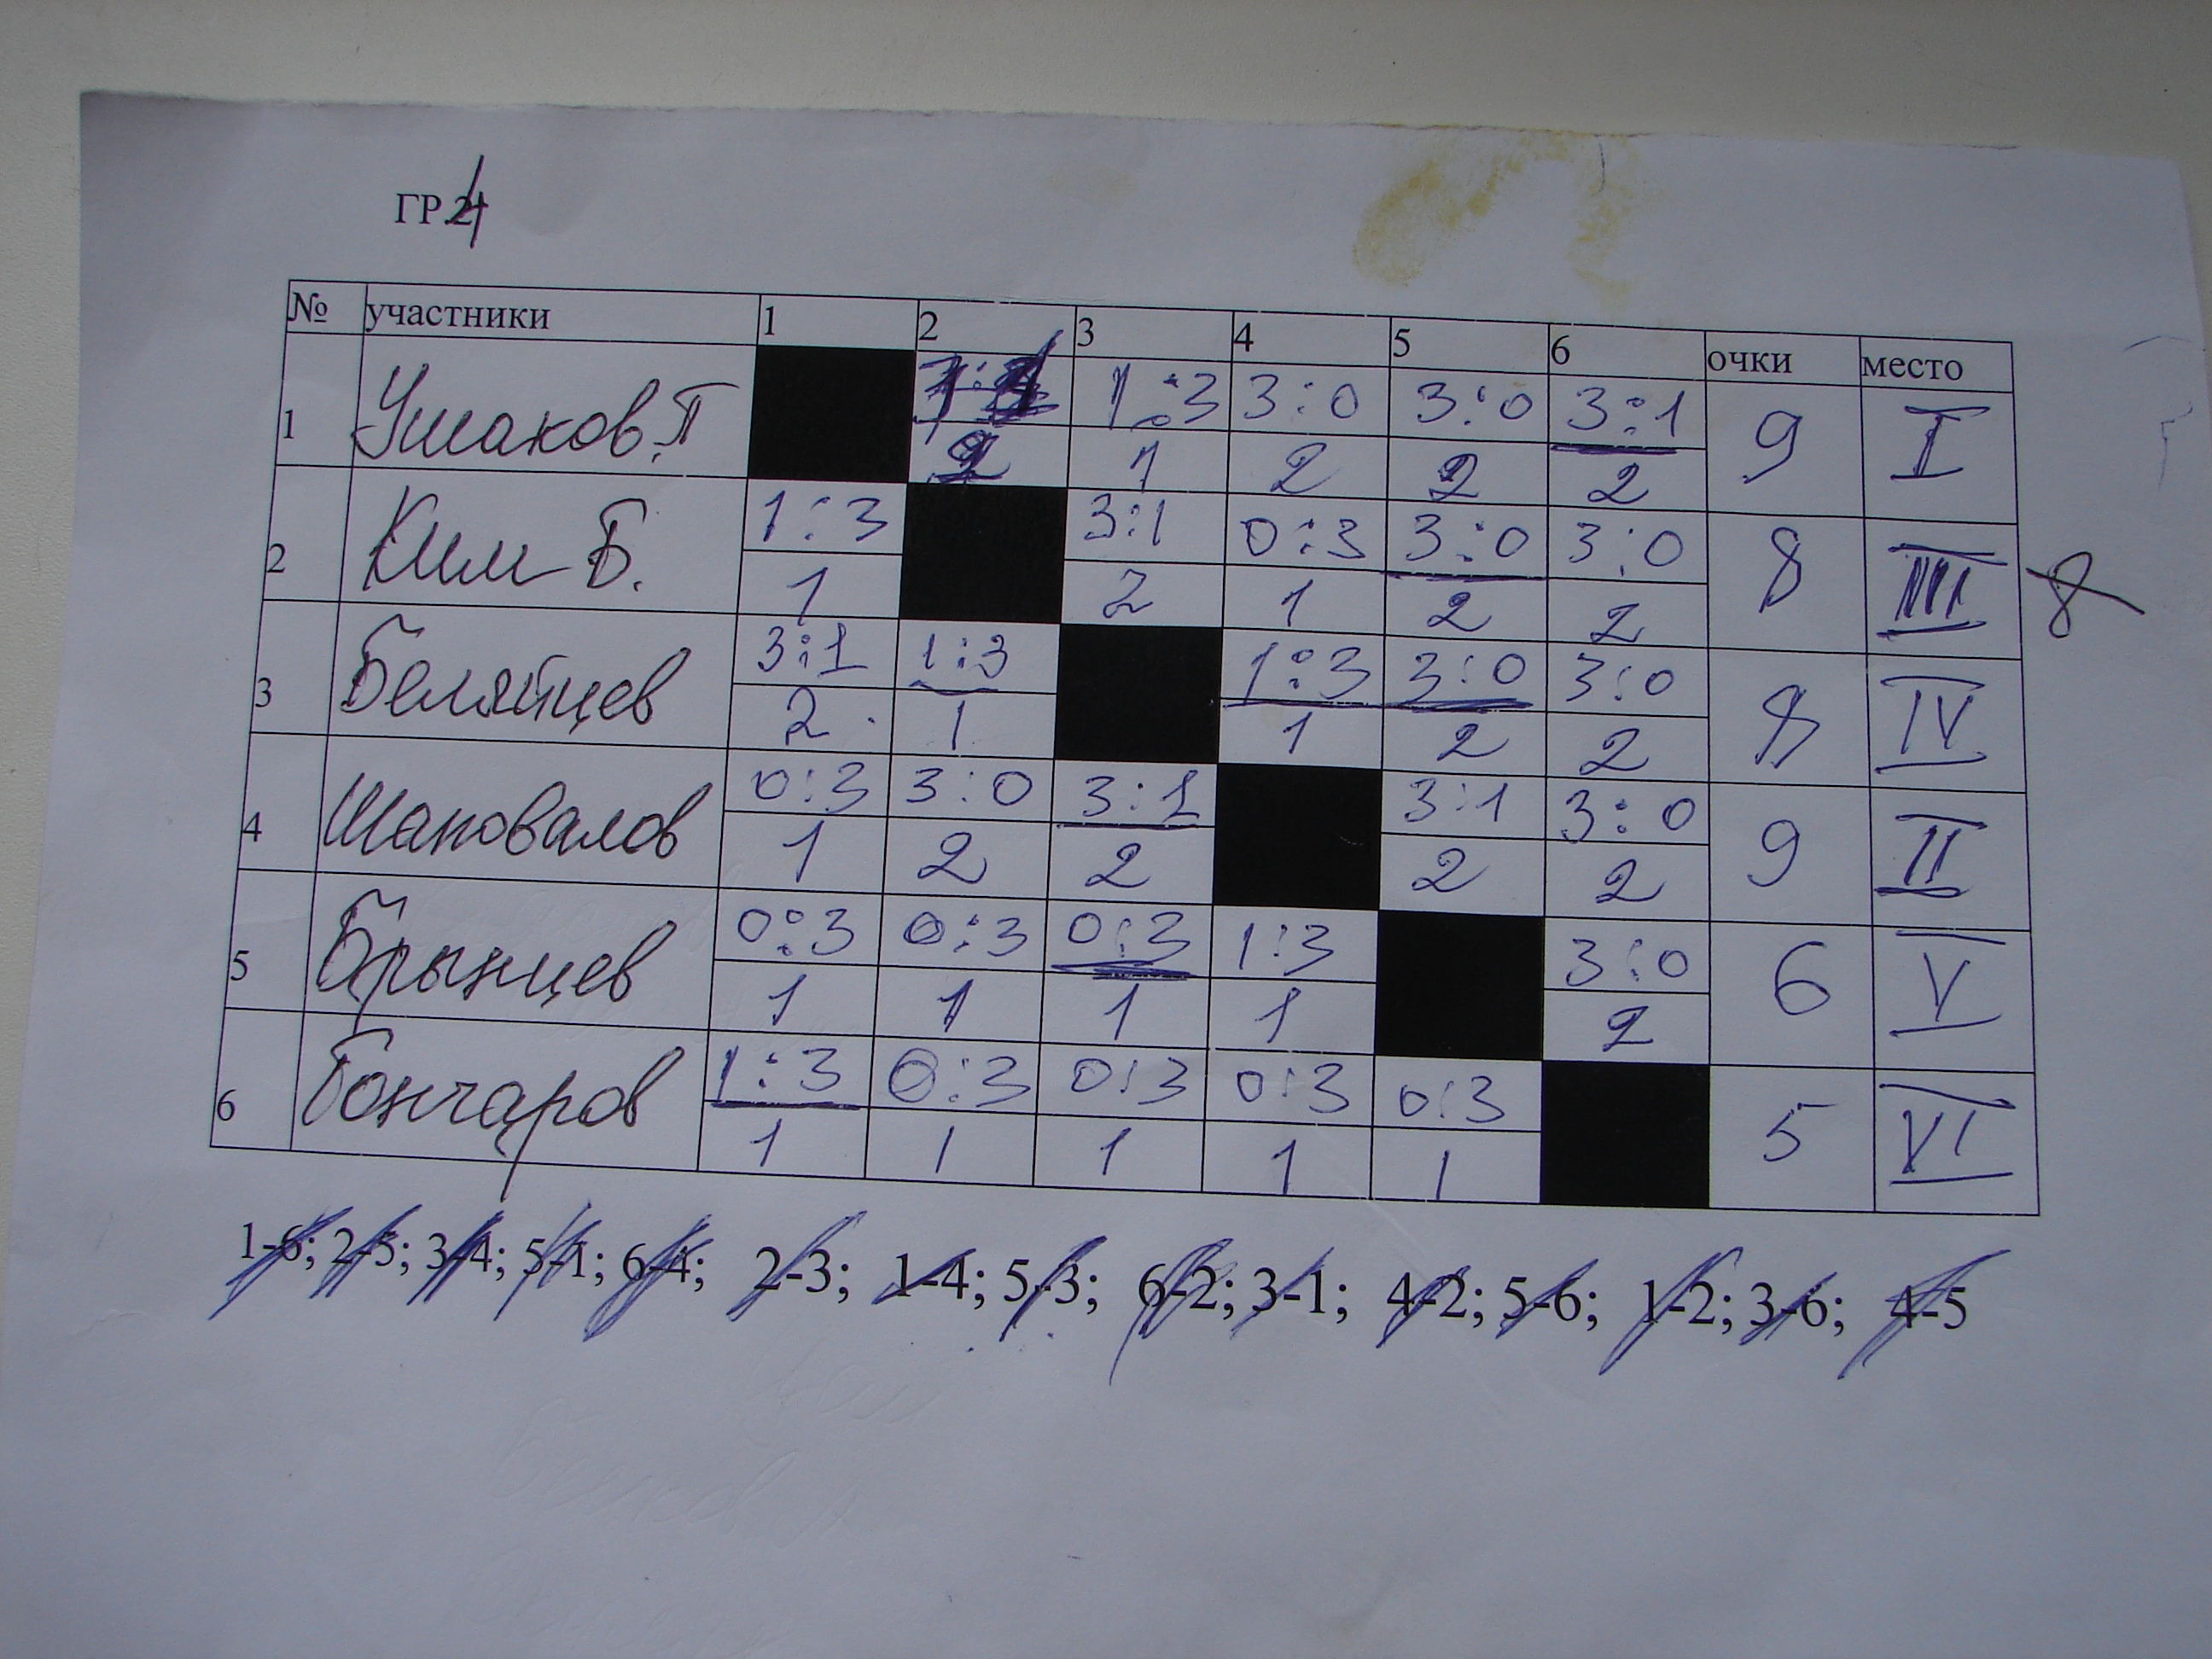 ГР.4
№ участники 1 2 3 4 5 6 очки место
1 Ушаков.П 1:3 3:0 3:0 3:1 9 I
2 1 2 2 2
2 Ким Б. 1:3 3:1 0:3 3:0 3:0 8 III 8
1 2 1 2 2
3 Беляйцев 3:1 1:3 1:3 3:0 3:0 8 IV
2 1 1 2 2
4 Шаповалов 0:3 3:0 3:1 3:1 3:0 9 II
1 2 2 2 2
5 Брынцев 0:3 0:3 0:3 1:3 3:0 6 V
1 1 1 1 2
6 Гончаров 1:3 0:3 0:3 0:3 0:3 5 VI
1 1 1 1 1
1-6; 2-5; 3-4; 5-1; 6-4; 2-3; 1-4; 5-3; 6-2; 3-1; 4-2; 5-6; 1-2; 3-6; 4-5